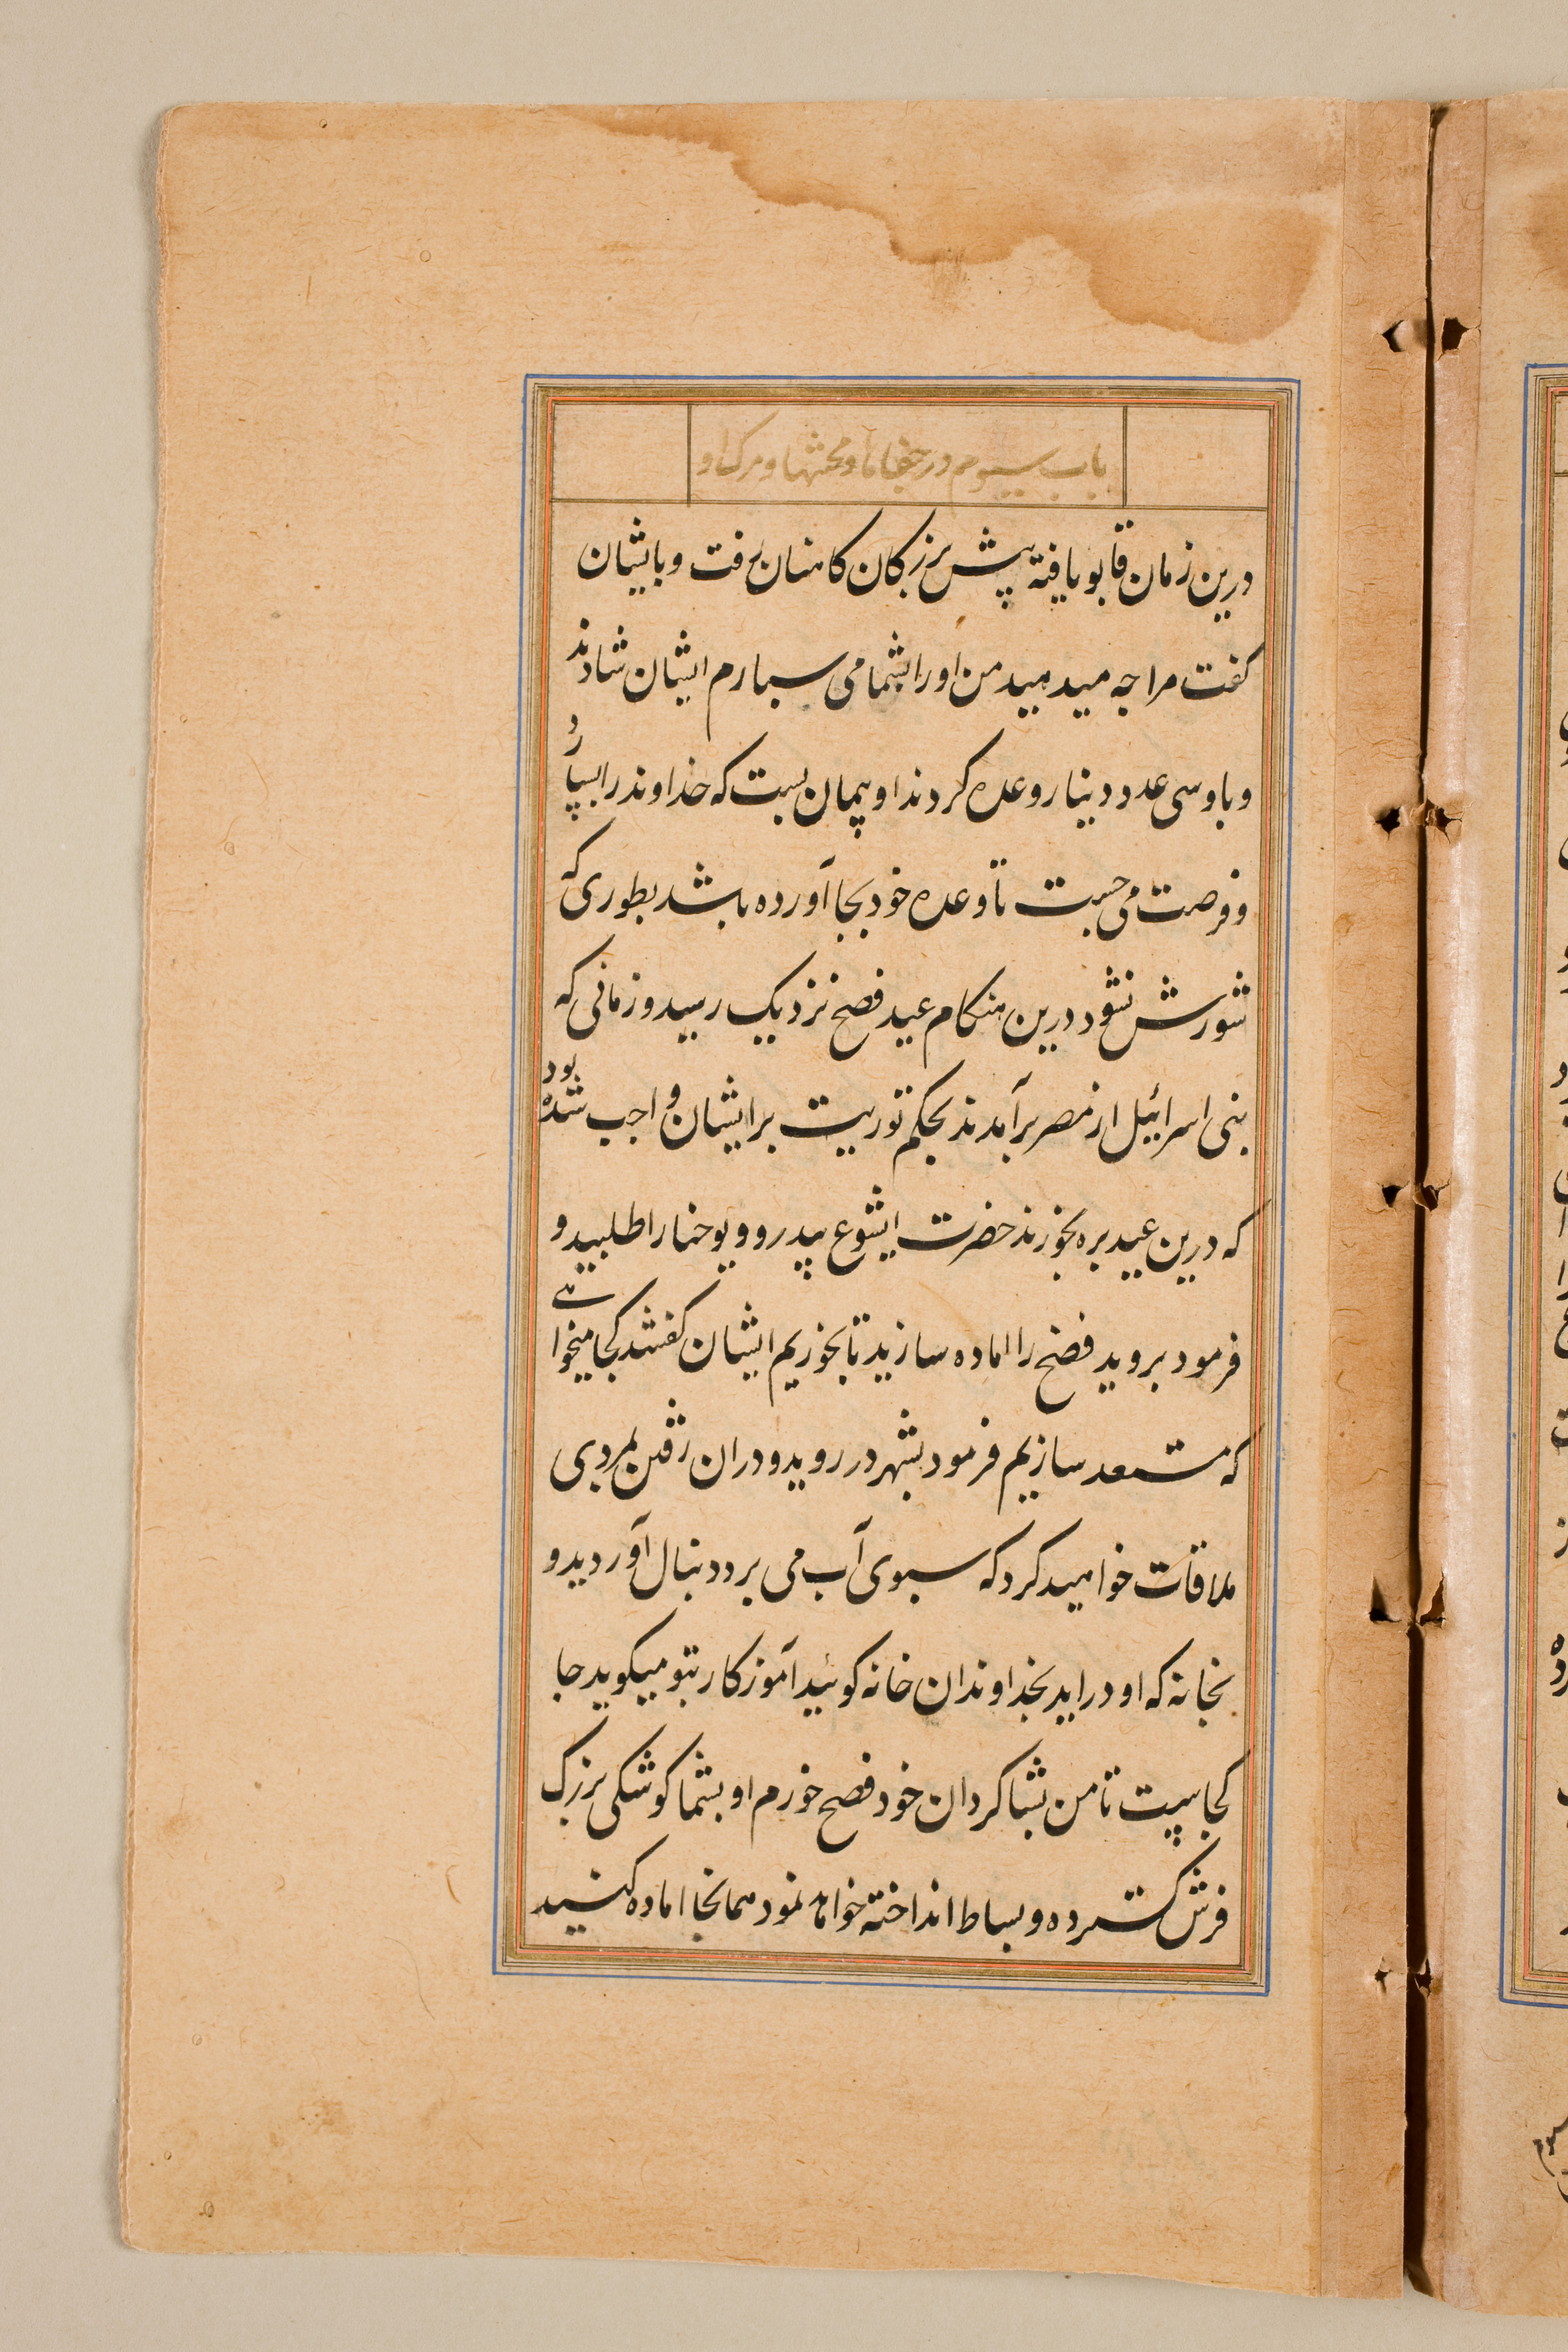 باب سیوم در جفاها و محنتها و مرک او
درین زمان قابو یافته پیش بزرکان کاهنان رفت و بایشان
کفت مرا چه میدهید من او را بشما می سپارم ایشان شاد شدند
و باو سی عدد دینار وعده کردند او پیمان بست که خداوند را بسپارد
و فرصت می جست تا وعده خود بجا آورده باشد بطوری که
شورش نشود درین هنکام عید فصح نزدیک رسید و زمانی که
بنی اسرائیل از مصر برآمدند بحکم توریت بر ایشان واجب شده بود
که درین عید بره بخورند حضرت ایشوع پیدرو و یوحنا را طلبید و
فرمود بروید فصح را اماده سازید تا بخوریم ایشان کفتند کجا میخواهی
که مستعد سازیم فرمود بشهر در روید و دران رفتن بمردی
ملاقات خواهید کرد که سبوی آب می برد دنبال او روید و
بخانه که او دراید بخداوندان خانه کوئید آموزکار بتو میکوید جا
کجاییست تا من بشاکردان خود فصح خورم او بشما کوشکی بزرک
فرش کسترده و بساط انداخته خواهد نمود همانجا اماده کنید